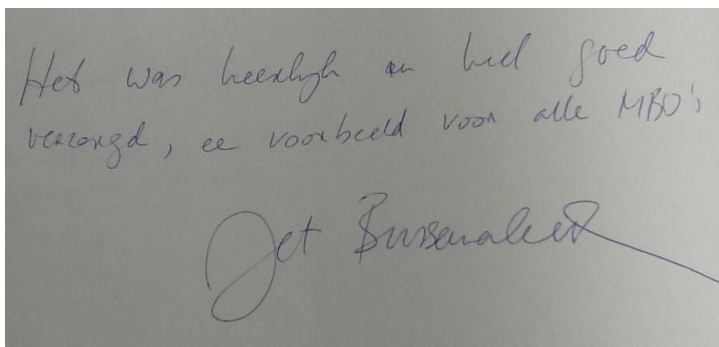 Het was heerlijk en heel goed
verzorgd, ee voorbeeld voor alle MBO's
Jet Bussemaker